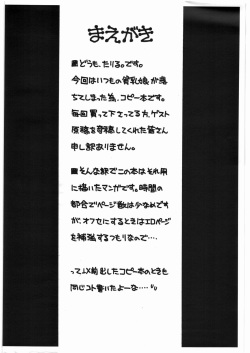 まえがき
■どうも、たりる。です。
今回はいつもの貧乳娘が落
ちてしまった為、コピー本です。
毎回買って下さってる方、ゲスト
原稿を寄稿してくれた皆さん
申し訳ありません。
■そんな訳でこの本はそれ用
に描いたマンガです。時間の
都合でページ数は少なめです
が、オフセにするときはエロページ
を補強するつもりなので‥‥
って前出したコピー本のときも
同じコト書いたよーな‥‥